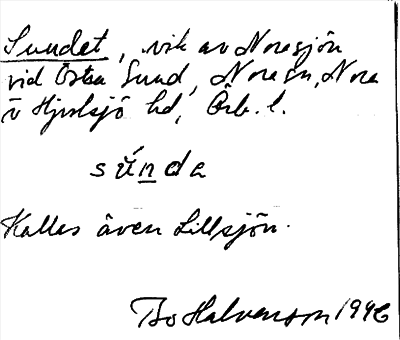 Sundet, vik av Norasjön
vid Östra Sund, Nora sn, Nora
o Hjulsjö hd, Örb. l.
súnda
Kallas även Lillsjön.
Bo Halvarson 1946